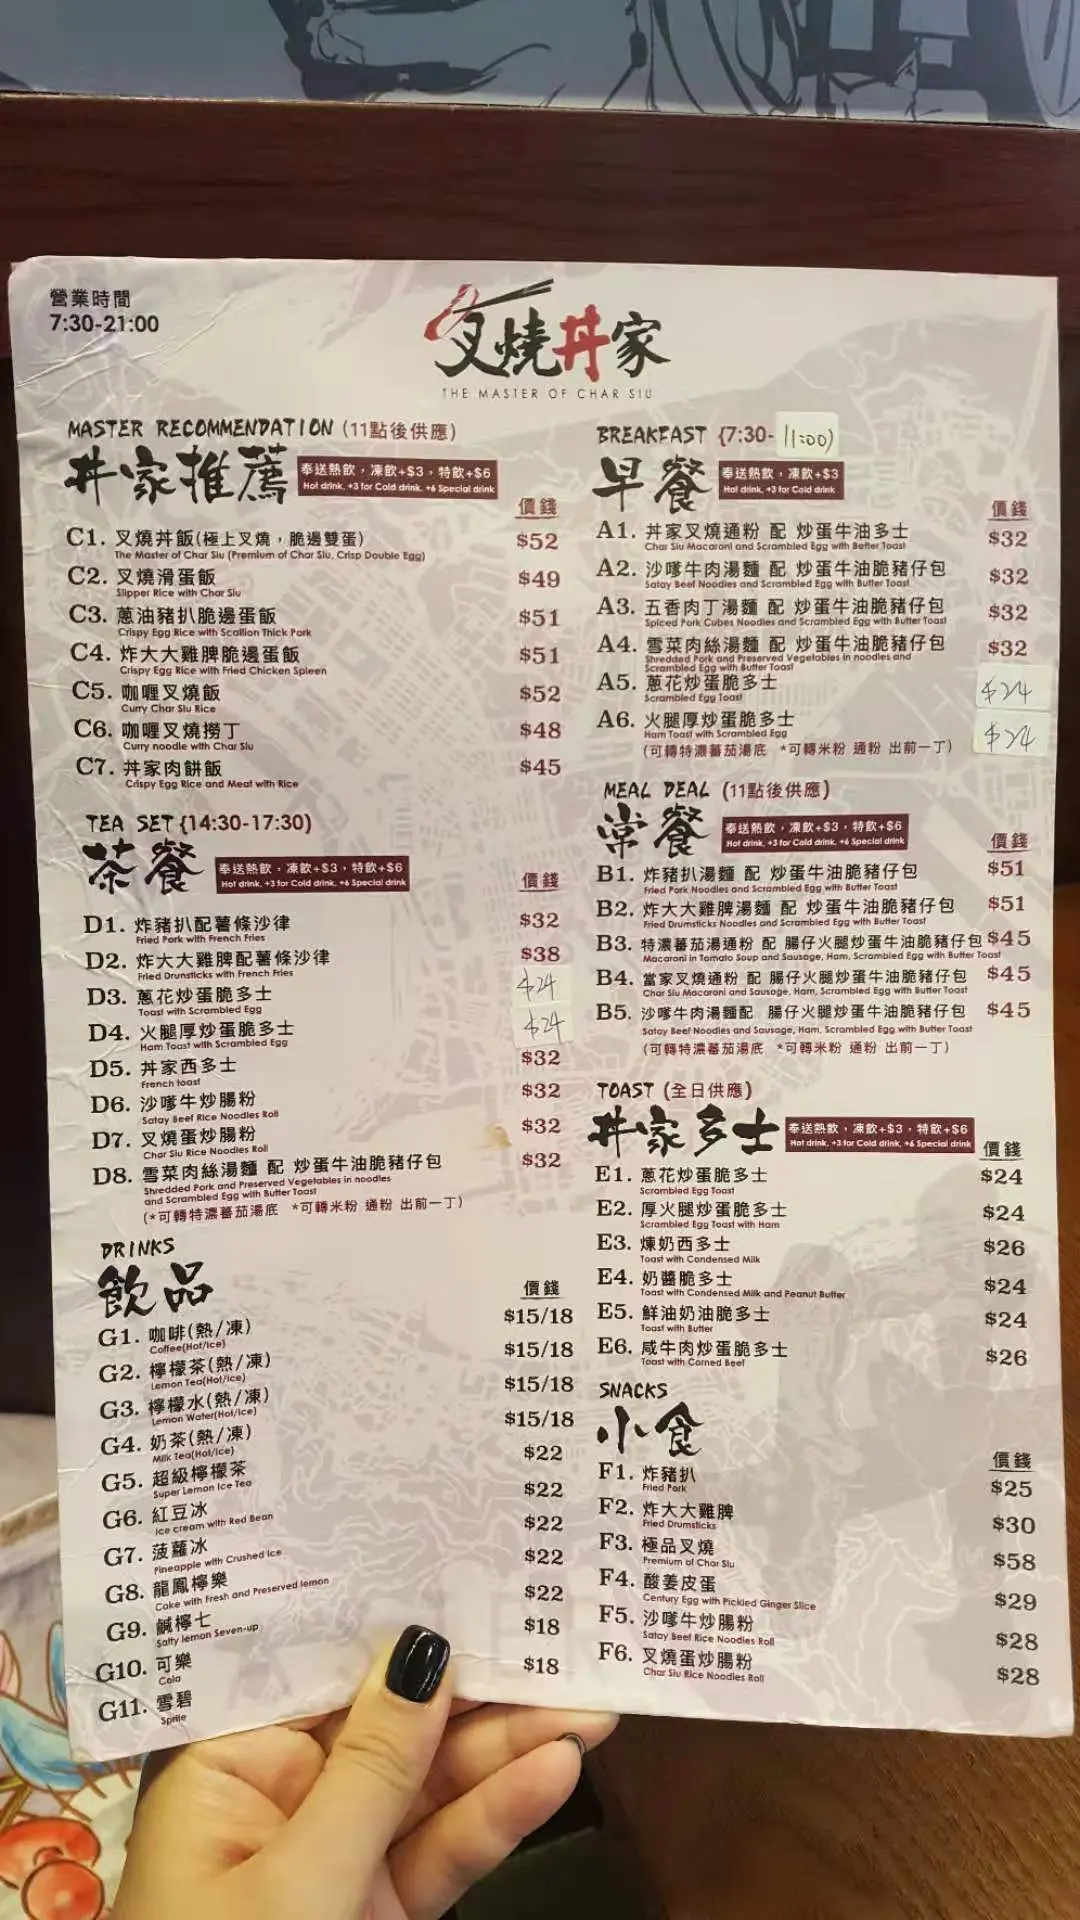 營業時間
7:30-21:00
叉燒丼家
THE MASTER OF CHAR SIU
MASTER RECOMMENDATION (11點後供應)
丼家推薦
奉送熱飲，凍飲+$3，特飲+$6
Hot drink, +3 for Cold drink, +6 Special drink
價錢
C1. 叉燒丼飯(極上叉燒，脆邊雙蛋) $52
The Master of Char Siu (Premium of Char Siu, Crisp Double Egg)
C2. 叉燒滑蛋飯 $49
Slipper Rice with Char Siu
C3. 蔥油豬扒脆邊蛋飯 $51
Crispy Egg Rice with Scallion Thick Pork
C4. 炸大大雞脾脆邊蛋飯 $51
Crispy Egg Rice with Fried Chicken Spleen
C5. 咖喱叉燒飯 $52
Curry Char Siu Rice
C6. 咖喱叉燒撈丁 $48
Curry noodle with Char Siu
C7. 丼家肉餅飯 $45
Crispy Egg Rice and Meat with Rice
TEA SET {14:30-17:30)
茶餐
奉送熱飲，凍飲+$3，特飲+$6
Hot drink, +3 for Cold drink, +6 Special drink
價錢
D1. 炸豬扒配薯條沙律 $32
Fried Pork with French Fries
D2. 炸大大雞脾配薯條沙律 $38
Fried Drunsticks with French Fries
D3. 蔥花炒蛋脆多士 $24
Toast with Scrambled Egg
D4. 火腿厚炒蛋脆多士 $24
Ham Toast with Scrambled Egg
D5. 丼家西多士 $32
French toast
D6. 沙嗲牛炒腸粉 $32
Satay Beef Rice Noodles Roll
D7. 叉燒蛋炒腸粉 $32
Char Siu Rice Noodles Roll
D8. 雪菜肉絲湯麵 配 炒蛋牛油脆豬仔包 $32
Shredded Pork and Preserved Vegetables in noodles
and Scrambled Egg with Butter Toast
(*可轉特濃蕃茄湯底 *可轉米粉 通粉 出前一丁)
DRINKS
飲品
價錢
G1. 咖啡(熱/凍) $15/18
Coffee(Hot/Ice)
G2. 檸檬茶(熱/凍) $15/18
Lemon Tea(Hot/Ice)
G3. 檸檬水(熱/凍) $15/18
Lemon Water(Hot/Ice)
G4. 奶茶(熱/凍) $15/18
Milk Tea(Hot/Ice)
G5. 超級檸檬茶 $22
Super Lemon Ice Tea
G6. 紅豆冰 $22
Ice cream with Red Bean
G7. 菠蘿冰 $22
Pineapple with Crushed Ice
G8. 龍鳳檸樂 $22
Coke with Fresh and Preserved lemon
G9. 鹹檸七 $22
Salty lemon Seven-up
G10. 可樂 $18
Cola
G11. 雪碧 $18
Sprite
BREAKFAST {7:30- 11:00)
早餐
奉送熱飲，凍飲+$3
Hot drink, +3 for Cold drink
價錢
A1. 丼家叉燒通粉 配 炒蛋牛油多士 $32
Char Siu Macaroni and Scrambled Egg with Better Toast
A2. 沙嗲牛肉湯麵 配 炒蛋牛油脆豬仔包 $32
Satay Beef Noodles and Scrambled Egg with Butter Toast
A3. 五香肉丁湯麵 配 炒蛋牛油脆豬仔包 $32
Spiced Pork Cubes Noodles and Scrambled Egg with Butter Toast
A4. 雪菜肉絲湯麵 配 炒蛋牛油脆豬仔包 $32
Shredded Pork and Preserved Vegetables in noodles and
Scrambled Egg with Butter Toast
A5. 蔥花炒蛋脆多士 $24
Scrambled Egg Toast
A6. 火腿厚炒蛋脆多士 $24
Ham Toast with Scrambled Egg
(可轉特濃蕃茄湯底 *可轉米粉 通粉 出前一丁)
MEAL DEAL (11點後供應)
常餐
奉送熱飲，凍飲+$3，特飲+$6
Hot drink, +3 for Cold drink, +6 Special drink
價錢
B1. 炸豬扒湯麵 配 炒蛋牛油脆豬仔包 $51
Fried Pork Noodles and Scrambled Egg with Butter Toast
B2. 炸大大雞脾湯麵 配 炒蛋牛油脆豬仔包 $51
Fried Drumsticks Noodles and Scrambled Egg with Butter Toast
B3. 特濃蕃茄湯通粉 配 腸仔火腿炒蛋牛油脆豬仔包 $45
Macaroni in Tomato Soup and Sausage, Ham, Scrambled Egg with Butter Toast
B4. 當家叉燒通粉 配 腸仔火腿炒蛋牛油脆豬仔包 $45
Char Siu Macaroni and Sausage, Ham, Scrambled Egg with Butter Toast
B5. 沙嗲牛肉湯麵配 腸仔火腿炒蛋牛油脆豬仔包 $45
Satay Beef Noodles and Sausage, Ham, Scrambled Egg with Butter Toast
(可轉特濃蕃茄湯底 *可轉米粉 通粉 出前一丁)
TOAST (全日供應)
丼家多士
奉送熱飲，凍飲+$3，特飲+$6
Hot drink, +3 for Cold drink, +6 Special drink
價錢
E1. 蔥花炒蛋脆多士 $24
Scrambled Egg Toast
E2. 厚火腿炒蛋脆多士 $24
Scrambled Egg Toast with Ham
E3. 煉奶西多士 $26
Toast with Condensed Milk
E4. 奶醬脆多士 $24
Toast with Condensed Milk and Peanut Butter
E5. 鮮油奶油脆多士 $24
Toast with Butter
E6. 咸牛肉炒蛋脆多士 $26
Toast with Corned Beef
SNACKS
小食
價錢
F1. 炸豬扒 $25
Fried Pork
F2. 炸大大雞脾 $30
Fried Drumsticks
F3. 極品叉燒 $58
Premium of Char Siu
F4. 酸姜皮蛋 $29
Century Egg with Pickled Ginger Slice
F5. 沙嗲牛炒腸粉 $28
Satay Beef Rice Noodles Roll
F6. 叉燒蛋炒腸粉 $28
Char Siu Rice Noodles Roll